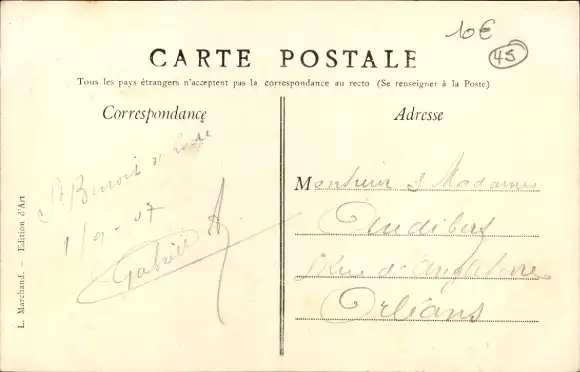 10€
45
CARTE POSTALE
Tous les pays étrangers n'acceptent pas la correspondance au recto (Se renseigner à la Poste)
Correspondance
St Benoit s/ Loire
1/9-07
Gabriel A.
L. Marchand. - Edition d'Art
Adresse
Monsieur & Madame
Audibert
Rue d'Angleterre
Orléans